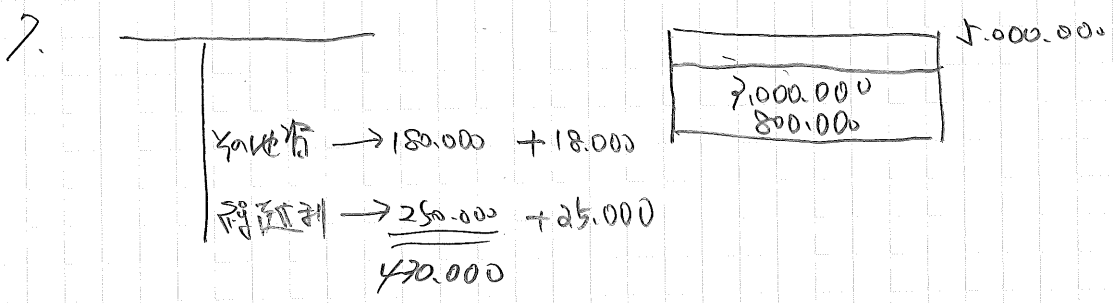 7.
5.000.000
7,000.000
800.000
→ 180.000 + 18.000
→ 250.000 + 25.000
430.000